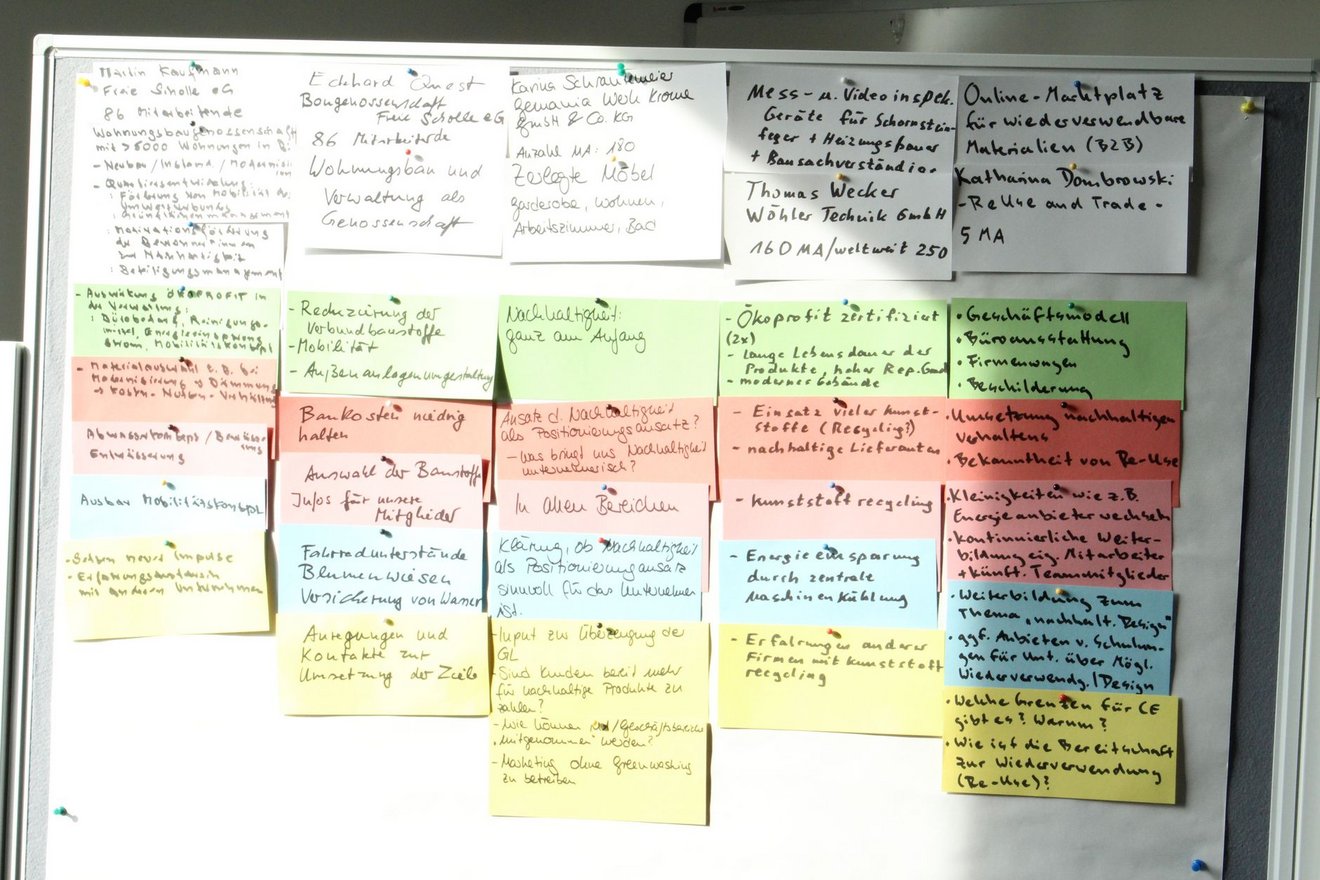 Martin Kaufmann
Freie Scholle eG
86 Mitarbeitende
Wohnungsbaugenossenschaft
mit >5000 Wohnungen in
- Neubau /
- Quartiersentwicklung:
: Förderung von Mobilität
: Motivationsförderung
der Bewohner*innen
zur Nachhaltigkeit
: Beteiligungsmanagement
- Auswirkung ÖKOPROFIT in
der Verwaltung:
: Bürobedarf, Reinigungs-
mittel, Energieeinsparung
Strom, Mobilitätskonzept
- Materialauswahl z.B. bei
Modernisierung → Dämmung
→ Kosten-Nutzen-Verhältnis
Abwasserkonzept / Bewässe-
rung
Entwässerung
Ausbau Mobilitätskonzept
- neue Impulse
- Erfahrungsaustausch
mit anderen Unternehmen
Eckhard Quest
Baugenossenschaft
Freie Scholle eG
86 Mitarbeitende
Wohnungsbau und
Verwaltung als
Genossenschaft
- Reduzierung der
Verbundbaustoffe
- Mobilität
- Außenanlagenumgestaltung
Baukosten niedrig
halten
Auswahl der Baustoffe
Infos für unsere
Mitglieder
Fahrradunterstände
Blumenwiesen
Versickerung von Wasser
Anregungen und
Kontakte zur
Umsetzung der Ziele
Karina
Germania Werk Krome
GmbH & Co. KG
Anzahl MA: 180
Zerlegte Möbel
Garderobe, Wohnen,
Arbeitszimmer, Bad
Nachhaltigkeit:
ganz am Anfang
Ansatz d. Nachhaltigkeit
als Positionierungsansatz?
- was bringt uns Nachhaltigkeit
unternehmerisch?
In allen Bereichen
Klärung, ob Nachhaltigkeit
als Positionierungsansatz
sinnvoll für das Unternehmen
ist.
- Input zur Überzeugung der
GL
- Sind Kunden bereit mehr
für nachhaltige Produkte zu
zahlen?
- Wie können /Geschäftsbereiche
"mitgenommen" werden?
- Marketing ohne Greenwashing
zu betreiben
Mess- u. Videoinspek.
Geräte für Schornstein-
feger + Heizungsbauer
+ Bausachverständige
Thomas Wecker
Wöhler Technik GmbH
160 MA/weltweit 250
- Ökoprofit zertifiziert
(2x)
- Lange Lebensdauer der
Produkte, hoher Rep.Grad
- modernes Gebäude
- Einsatz vieler Kunst-
stoffe (Recycling?)
- nachhaltige Lieferanten
- Kunststoffrecycling
- Energieeinsparung
durch zentrale
Maschinenkühlung
- Erfahrungen anderer
Firmen mit Kunststoff
recycling
Online-Marktplatz
für wiederverwendbare
Materialien (B2B)
Katharina Dombrowski
- ReUse and Trade -
5 MA
• Geschäftsmodell
• Büroausstattung
• Firmenwagen
• Beschilderung
• Umsetzung nachhaltigen
Verhaltens
• Bekanntheit von Re-Use
• Kleinigkeiten wie z.B.
Energieanbieter wechseln
• Kontinuierliche Weiter-
bildung eig. Mitarbeiter
+ künft. Teammitglieder
• Weiterbildung zum
Thema "nachhalt. Design"
• ggf. Anbieten v. Schulun-
gen für Unt. über Mögl.
Wiederverwendg./Design
• Welche Grenzen für CE
gibt es? Warum?
• Wie ist die Bereitschaft
zur Wiederverwendung
(Re-Use)?